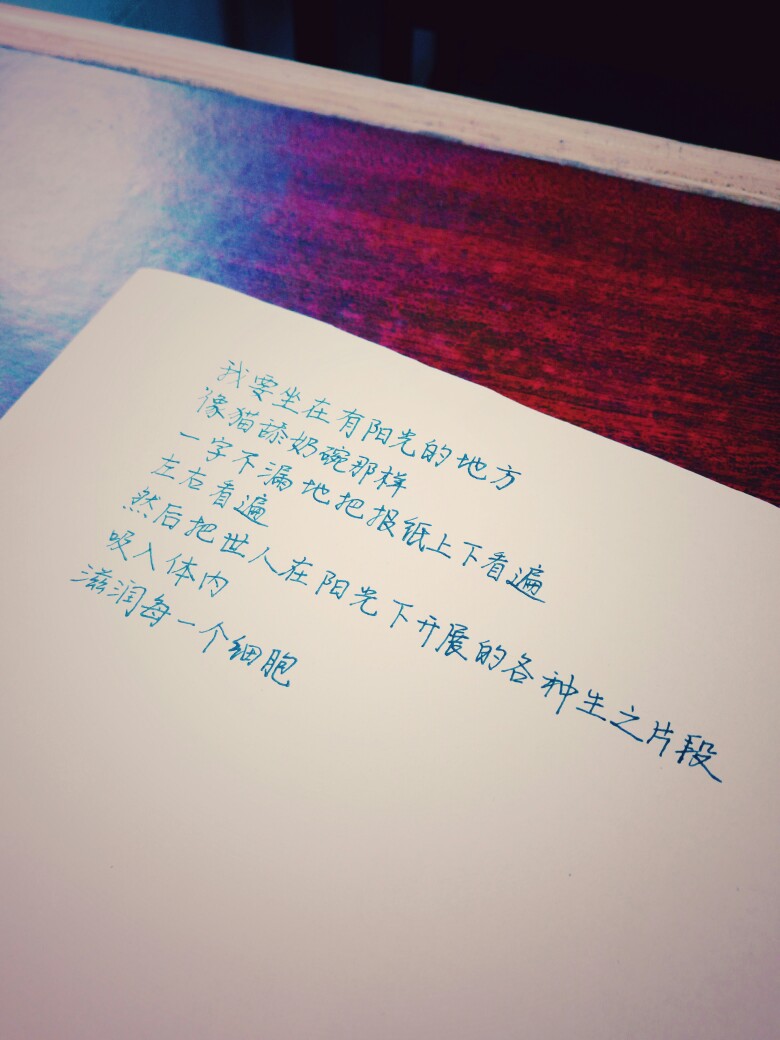 我要坐在有阳光的地方
像猫舔奶碗那样
一字不漏地把报纸上下看遍
左右看遍
然后把世人在阳光下开展的各种生之片段
吸入体内
滋润每一个细胞